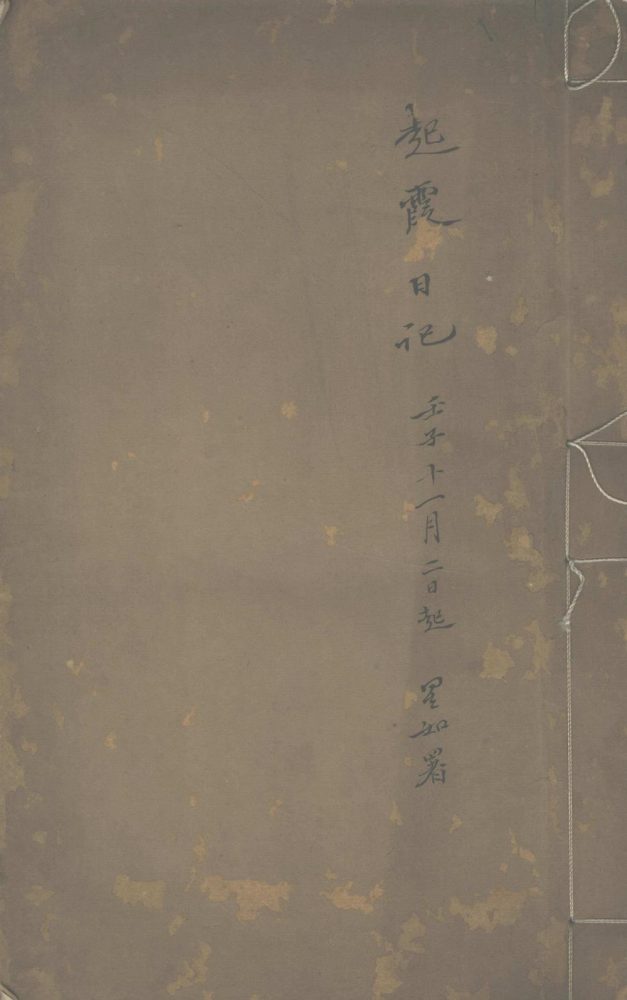 起霞日記 壬子十一月二日起 星如署